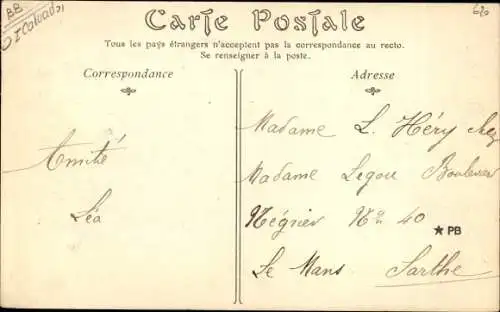 BB
Carte Postale
620
Tous les pays étrangers n'acceptent pas la correspondance au recto.
Se renseigner à la poste.
Correspondance
Amitié
Léa
Adresse
Madame L. Héry chez
Madame Legou Boulevard
Négrier No 40
★ PB
Le Mans Sarthe